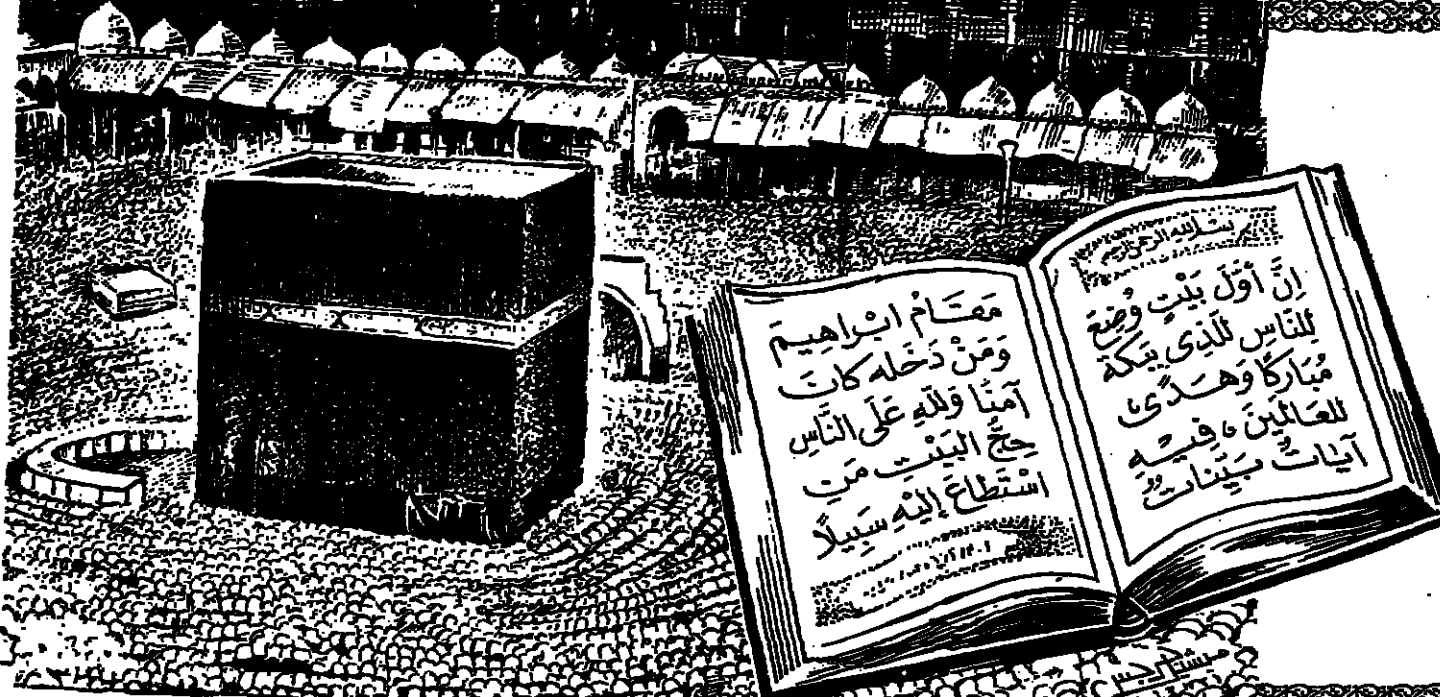 بسم الله الرحمن الرحيم
اِنَّ أَوَّلَ بَيْتٍ وُضِعَ
لِلنَّاسِ لَلَّذِى بِبَكَّةَ
مُبَارَكًا وَهُدًى
لِلعَالَمِينَ ، فِيْهِ
آيَاتٌ بَيِّنَاتٌ
مَقَامُ ابْرَاهِيمَ
وَمَنْ دَخَلَه كَانَ
آمِنًا وَللهِ عَلَى النَّاسِ
حِجُّ البَيْتِ مَنِ
اسْتَطَاعَ إِلَيْهِ سَبِيلًا